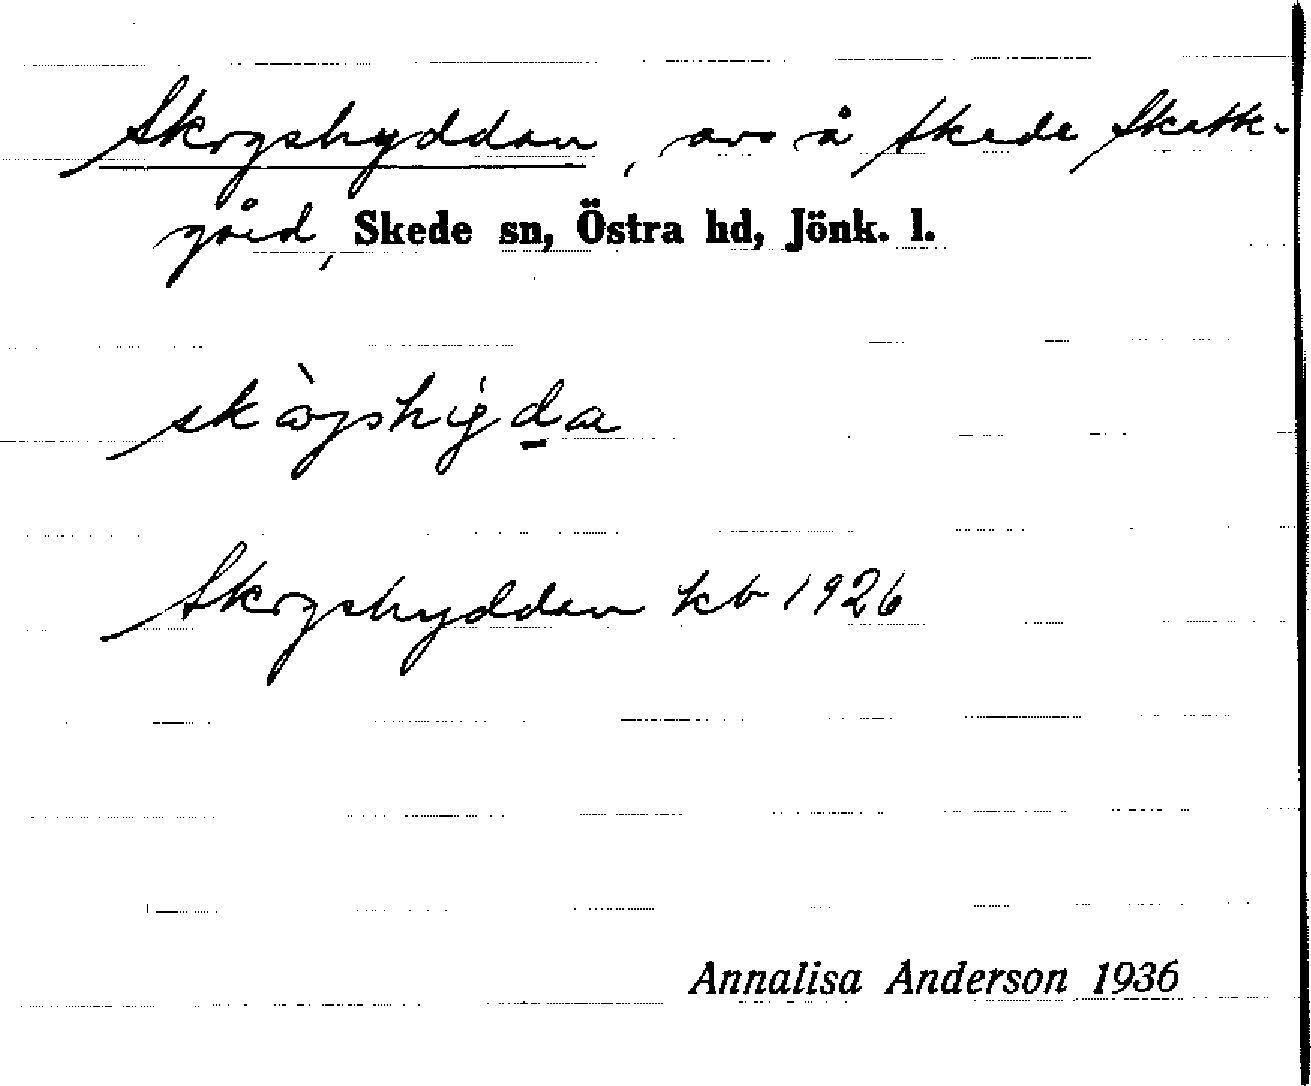 Skogshyddan, avs å Skede Skatte-
gård, Skede sn, Östra hd, Jönk. l.
Skogshyddan kb 1926
Annalisa Anderson 1936